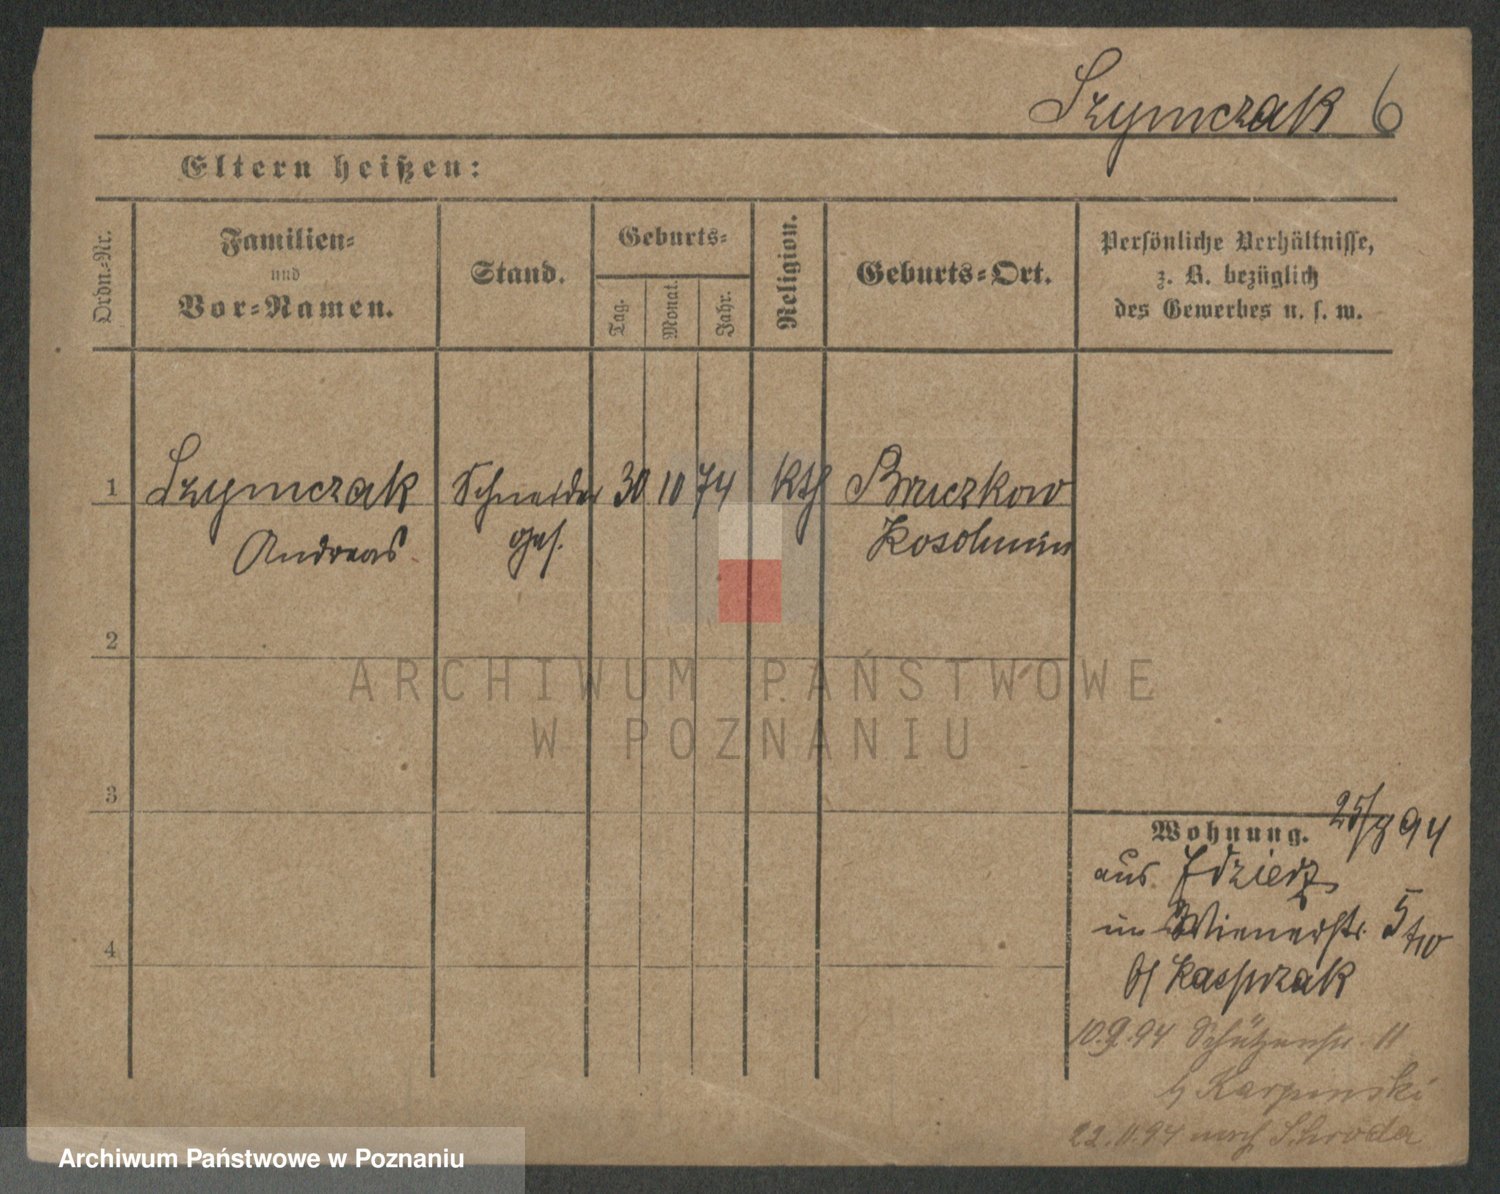 Szymczak 6
Eltern heißen:
Ordn.-Nr.
Familien-
und
Vor-Namen.
Stand.
Geburts-
Tag.
Monat.
Jahr.
Religion.
Geburts-Ort.
Persönliche Verhältnisse,
z. B. bezüglich
des Gewerbes u. s. w.
1 Szymczak Schneider 30 10 74 Kth Bruczkow
Andreas ges. Koschmin
2
3
4
Wohnung. 25/8 94
aus
in Wienerstr. 5
b/ Kasprzak
10.9.94 Schützenstr. 11
b/ Karpinski
22.11.94 nach Schroda
ARCHIWUM PAŃSTWOWE
W POZNANIU
Archiwum Państwowe w Poznaniu